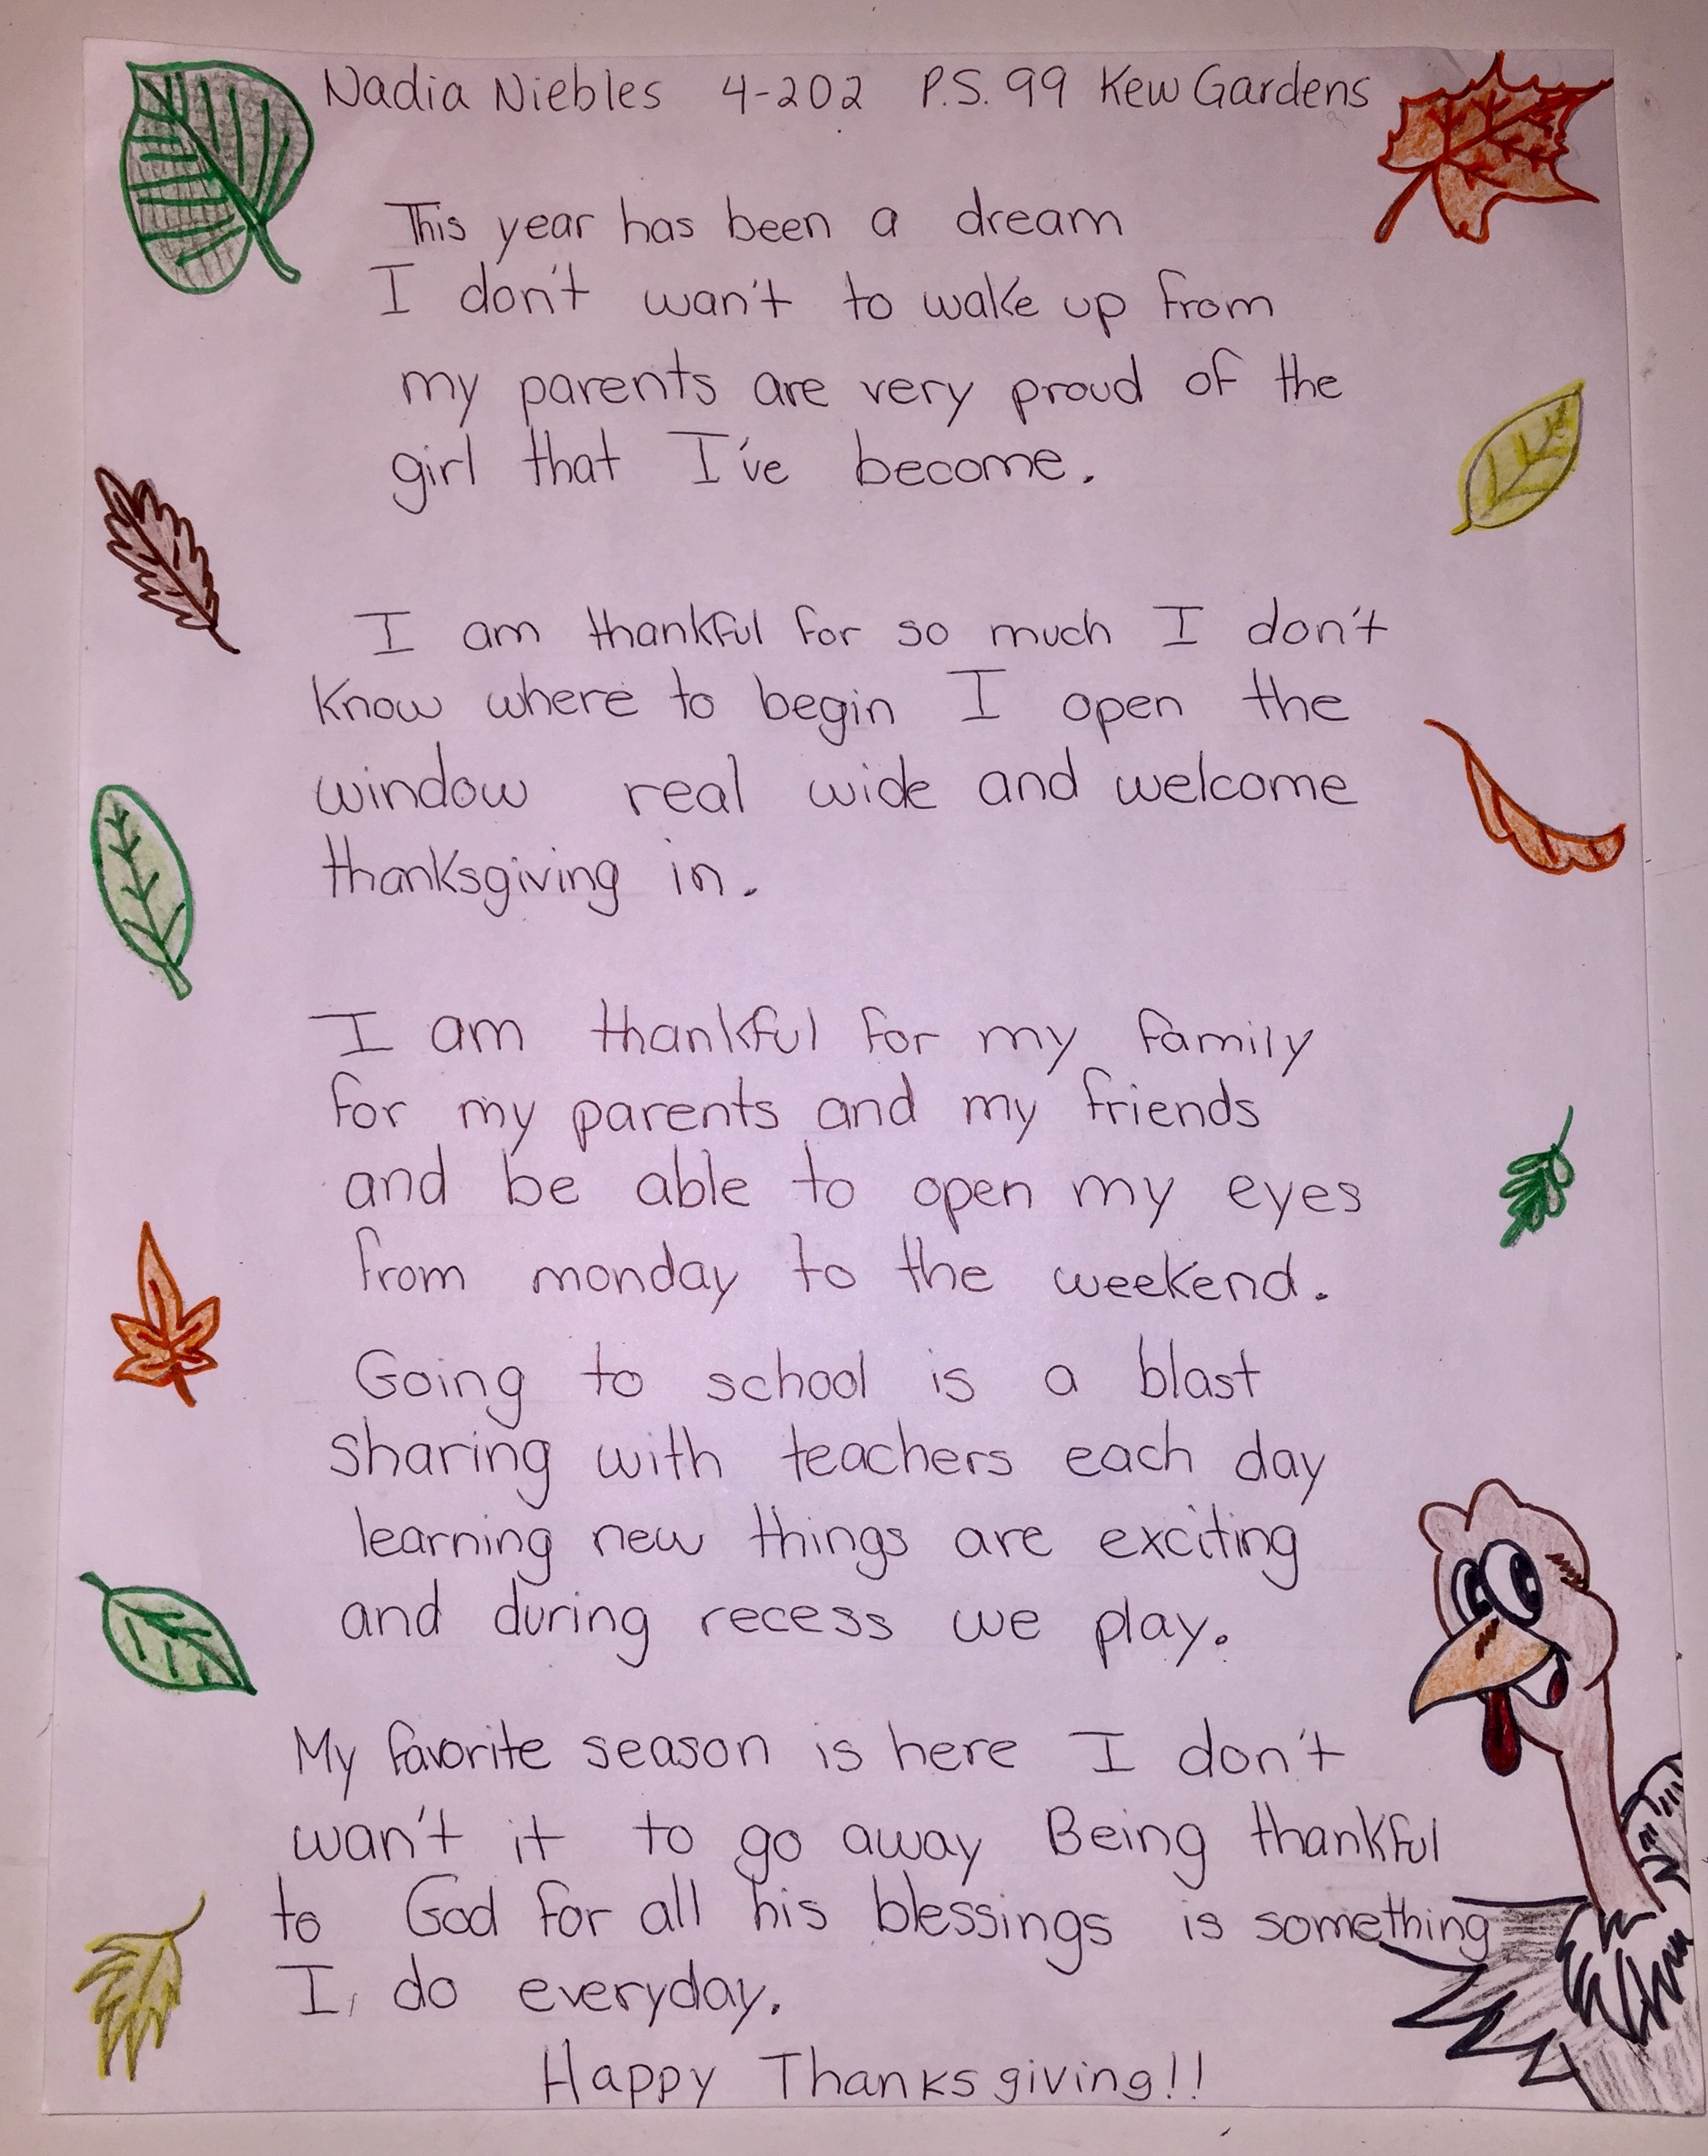 Nadia Niebles 4-202 P.S. 99 Kew Gardens
This year has been a dream
I don't wan't to wake up from
my parents are very proud of the
girl that I've become.
I am thankful for so much I don't
know where to begin I open the
window real wide and welcome
thanksgiving in.
I am thankful for my family
for my parents and my friends
and be able to open my eyes
from monday to the weekend.
Going to school is a blast
sharing with teachers each day
learning new things are exciting
and during recess we play.
My favorite season is here I don't
wan't it to go away Being thankful
to God for all his blessings is something
I do everyday.
Happy Thanksgiving!!